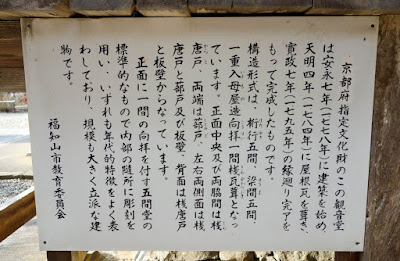 京都府指定文化財のこの観音堂
は安永七年(一七七八年)に建築を始め、
天明四年(一七八四年)に屋根瓦を葺き、
寛政七年(一七九五年)の縁廻り完了を
もって完成したものです。
構造形式は、桁行五間、梁間五間、
一重入母屋造向拝一間桟瓦葺となっ
ています。正面中央及び両脇間は桟
唐戸、両端は蔀戸、左右両側面は桟
唐戸と蔀戸及び板壁、背面は桟唐戸
と板壁からなっています。
正面に一間の向拝を付す五間堂の
標準的なもので内部の随所に彫刻を
用い、いずれも年代的特徴をよく表
わしており、規模も大きく立派な建
物です。
福知山市教育委員会